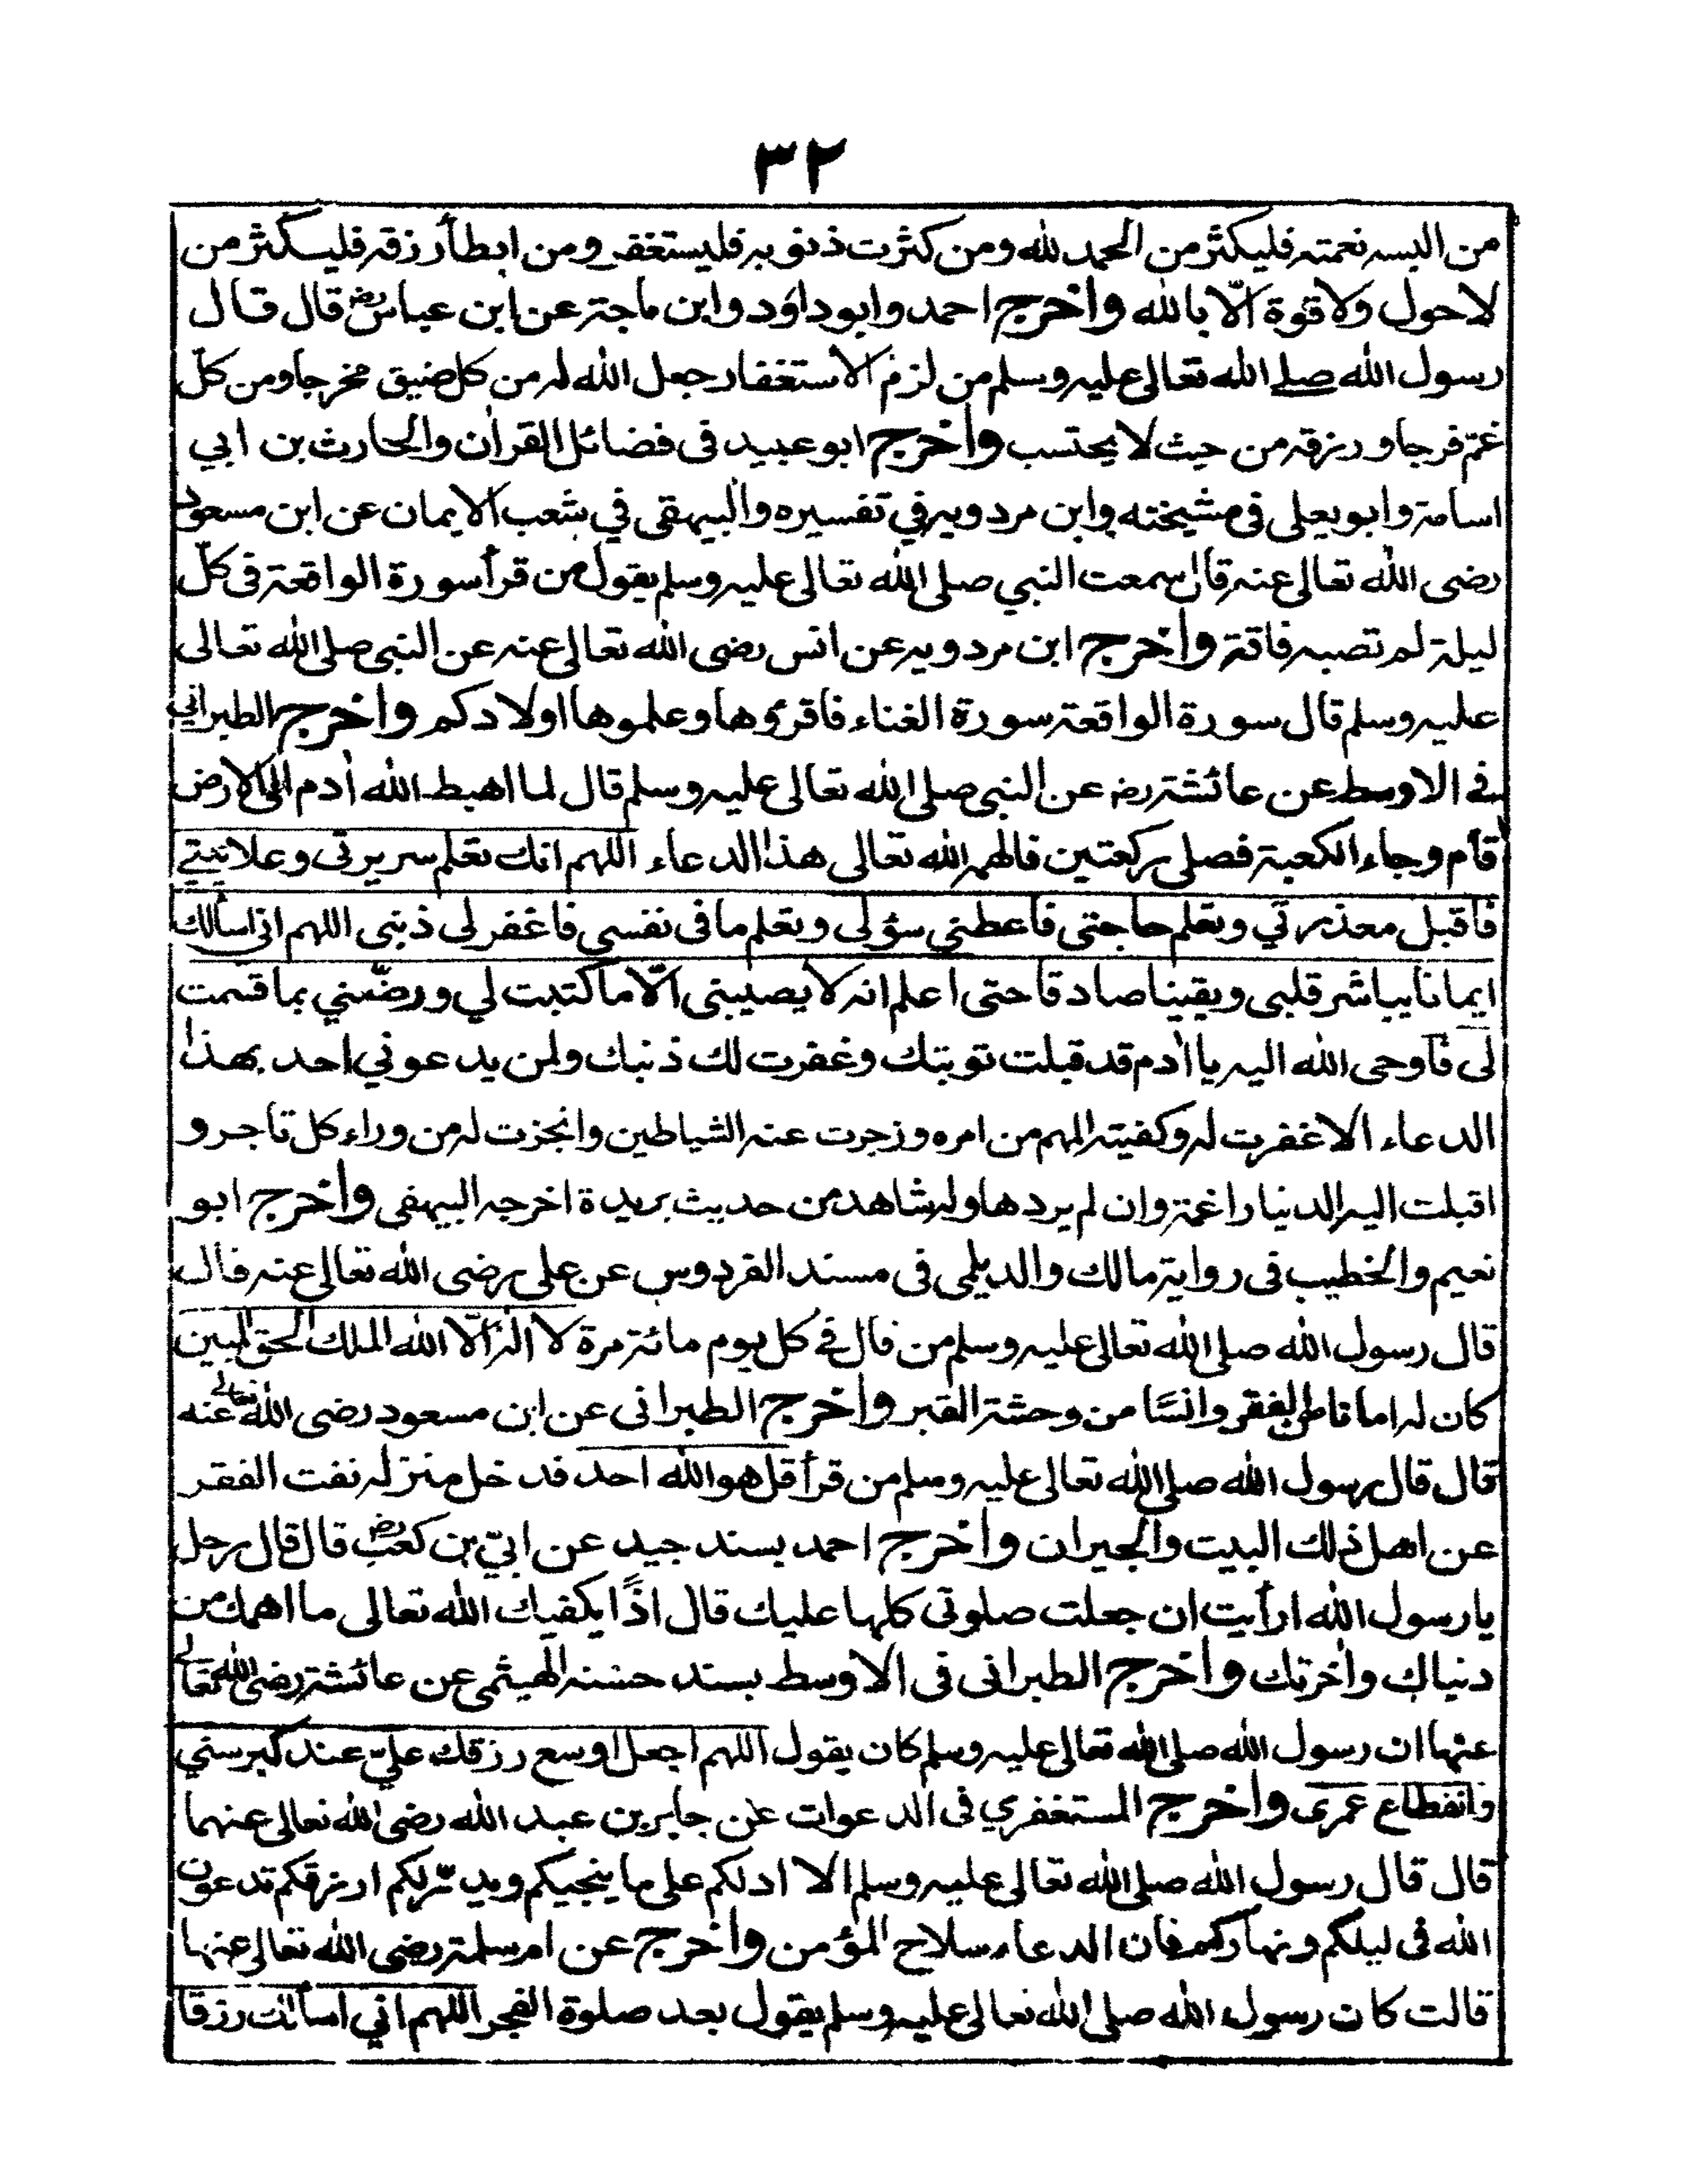 ٣٢
من البسه نعمته فليكثر من الحمد لله ومن كثرت ذنوبه فليستغفر ومن ابطأ رزقه فليسكثر من
لاحول ولا قوة الّا بالله واخرج احمد وابو داؤد وابن ماجة عن ابن عباس رض قال قال
رسول الله صلے الله تعالى عليه وسلم من لزم الاستغفار جعل الله له من كل ضيق مخرجا ومن كلّ
غمّ فرجا و رزقه من حيث لا يحتسب واخرج ابو عبيد فى فضائل القراٰن والحارث بن ابي
اسامة وابو يعلى فى مشيخته وابن مردويه في تفسيره والبيهقى في شعب الايمان عن ابن مسعود
رضى الله تعالى عنه قال سمعت النبي صلى الله تعالى عليه وسلم يقول من قرأ سورة الواقعة فى كلّ
ليلة لم تصبه فاقة واخرج ابن مردويه عن انس رضى الله تعالى عنه عن النبى صلى الله تعالى
عليه وسلم قال سورة الواقعة سورة الغناء فاقرؤها وعلموها اولادكم واخرج الطبراني
فے الاوسط عن عائشة رض عن النبى صلى الله تعالى عليه وسلم قال لما اهبط الله اٰدم الى الارض
قام وجاء الكعبة فصلى ركعتين فالهمه الله تعالى هذا الدعاء اللهم انك تعلم سريرتى وعلانيتے
فاقبل معذرتي وتعلم حاجتى فاعطني سؤلى وتعلم ما فى نفسى فاغفر لى ذنبى اللهم انى اسألك
ايمانا يباشر قلبى ويقينا صادقا حتى اعلم انه لا يصيبنى الّا ما كتبت لي ورضّني بما قسمت
لى فاوحى الله اليه يا اٰدم قد قبلت توبتك وغفرت لك ذنبك ولمن يدعوني احد بهذا
الدعاء الا غفرت له وكفيته المهم من امره وزجرت عنه الشياطين وانجزت له من وراء كل تاجر و
اقبلت اليه الدنيا راغمة وان لم يردها وله شاهد من حديث بريدة اخرجه البيهقى واخرج ابو
نعيم والخطيب فى رواية مالك والديلمى فى مسند الفردوس عن على رضى الله تعالى عنه قال
قال رسول الله صلى الله تعالى عليه وسلم من قال فے كل يوم مائة مرة لا اله الّا الله الملك الحق المبين
كان له اما نا من الفقر وانسًا من وحشة القبر واخرج الطبرانى عن ابن مسعود رضى الله تعالے عنه
قال قال رسول الله صلى الله تعالى عليه وسلم من قرأ قل هو الله احد قد خل منزله نفت الفقر
عن اهل ذلك البيت والجيران واخرج احمد بسند جيد عن ابيّ بن كعب رض قال قال رجل
يا رسول الله ارأيت ان جعلت صلوتى كلها عليك قال اذًا يكفيك الله تعالى ما اهمك من
دنياك واٰخرتك واخرج الطبرانى فى الاوسط بسند حسنه الهيثمى عن عائشة رضى الله تعالے
عنها ان رسول الله صلى الله تعالى عليه وسلم كان يقول اللهم اجعل اوسع رزقك علىّ عند كبر سني
وانقطاع عمرى واخرج المستغفري فى الدعوات عن جابر بن عبد الله رضى الله تعالى عنهما
قال قال رسول الله صلى الله تعالى عليه وسلم الا ادلكم على ما ينجيكم ويدرّ لكم ارزقكم تدعون
الله فى ليلكم ونهاركم فان الدعاء سلاح المؤمن واخرج عن ام سلمة رضى الله تعالى عنها
قالت كان رسول الله صلى الله تعالى عليه وسلم يقول بعد صلوة الفجر اللهم اني اسألك رزقا